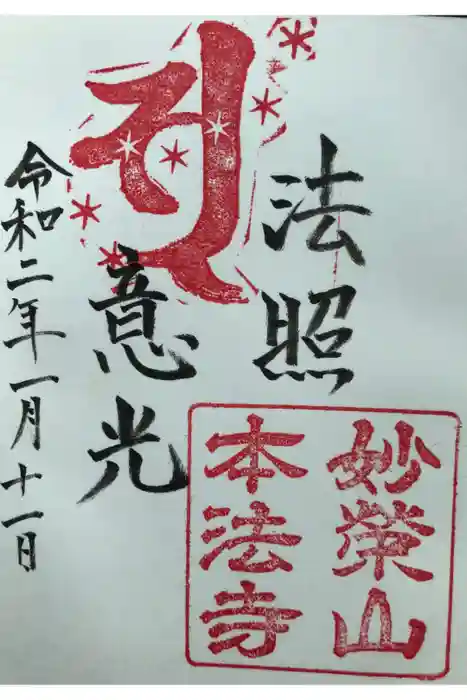 法照
意光
令和二年一月十一日
妙榮山
本法寺